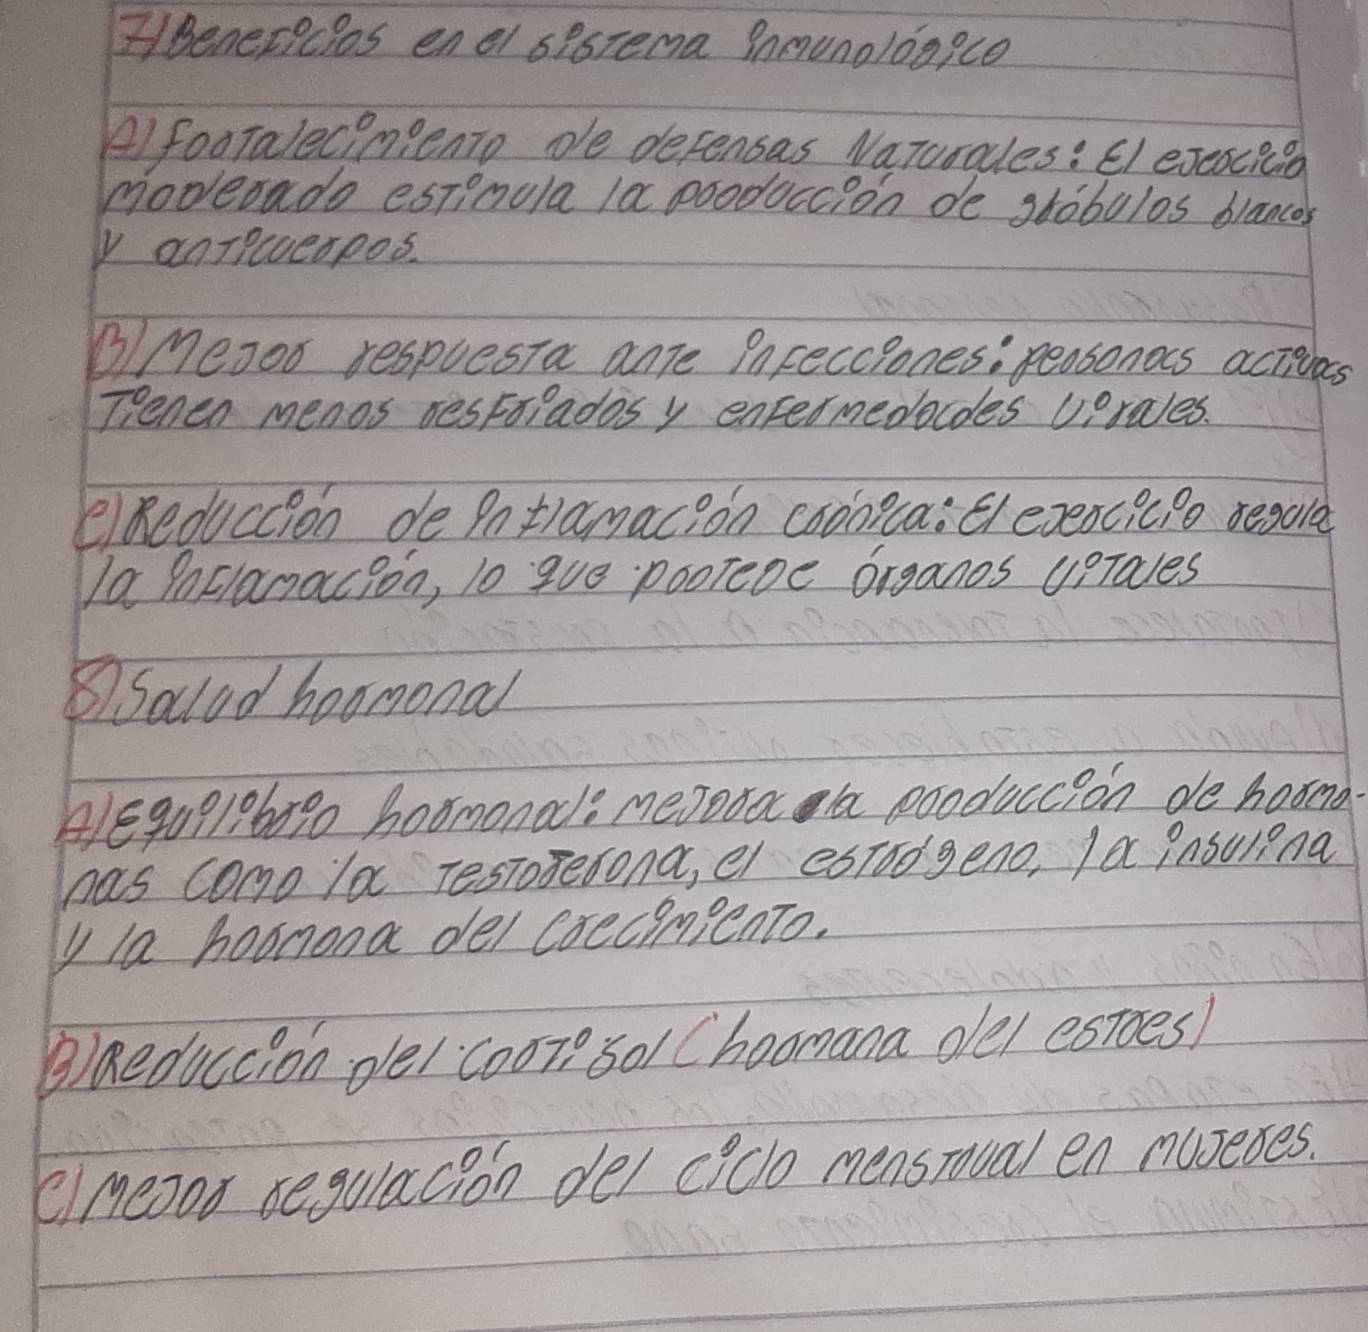 7) Beneficios en el sistema inmunológico
A) fortalecimiento de defensas Naturales: El ejercicio
moderado estimula la producción de glóbulos blancos
y anticuerpos.
B) Mejor respuesta ante infecciones: personas activas
Tienen menos resfriados y enfermedades virales.
C) Reducción de inflamación crónica: El ejercicio regula
la inflamación, lo que protege órganos vitales
8) Salud hormonal
A) Equilibrio hormonal: mejora la producción de hormo-
nas como la testoterona, el estrógeno, la insulina
y la hormona del crecimiento.
B) Reducción del cortisol (hormana del estres)
C) Mejor regulación del ciclo menstrual en mujeres.